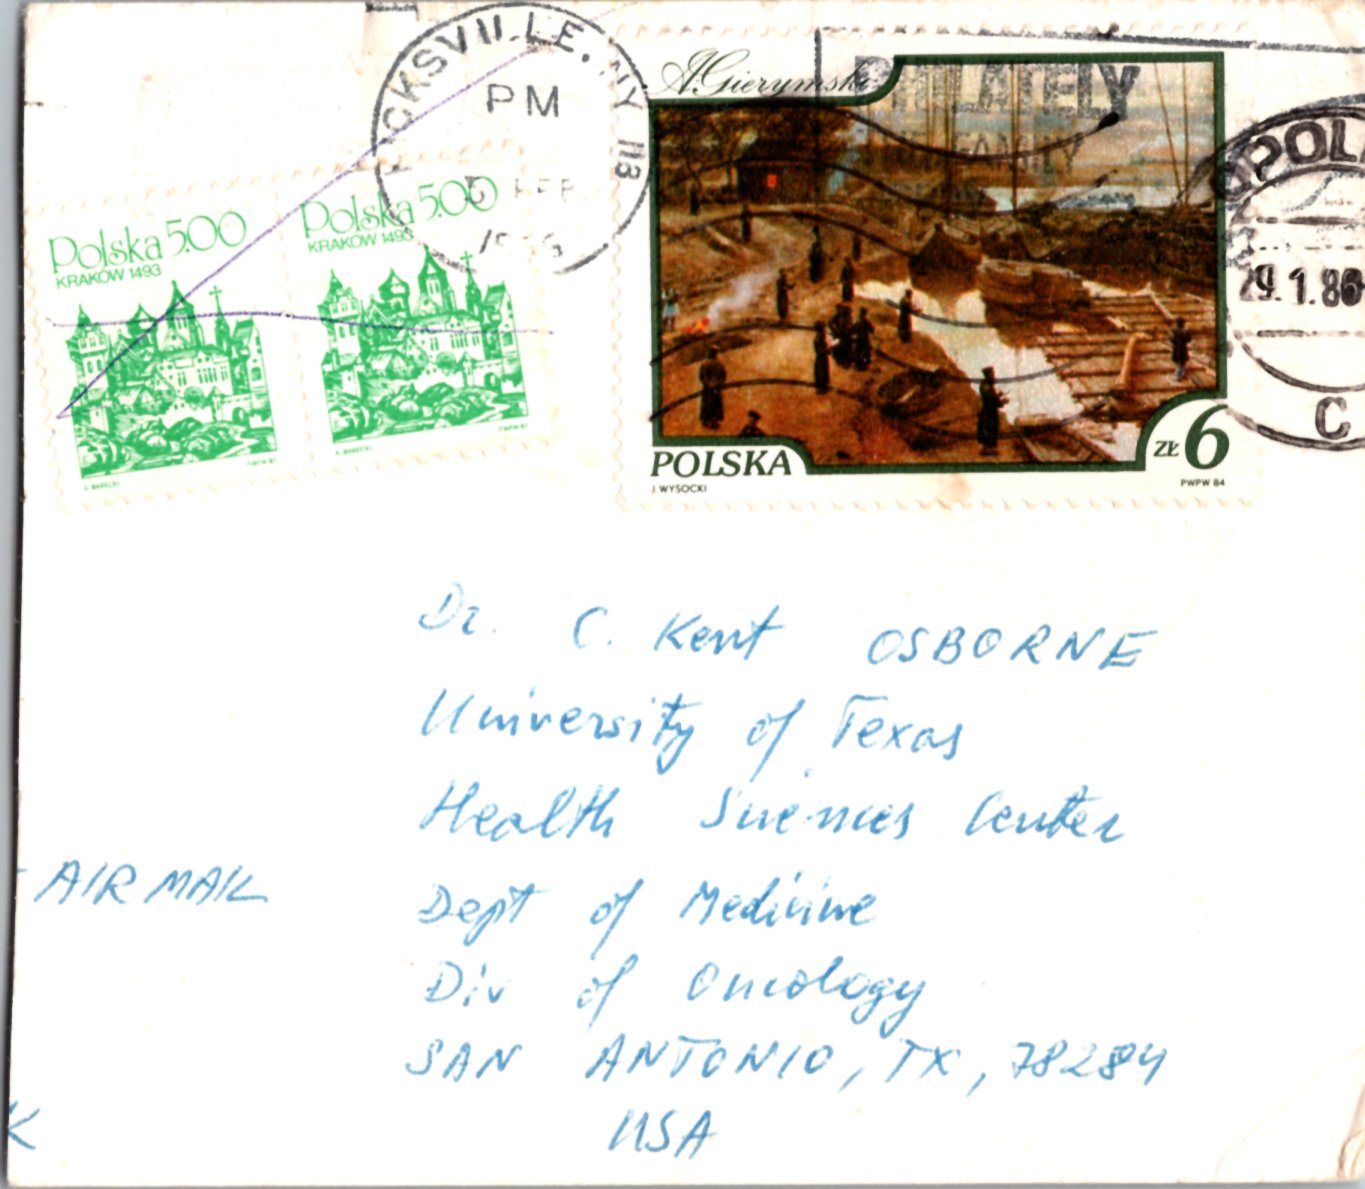 PM
FEB
A.Gierymski
PHILATELY
Polska 5.00
KRAKÓW 1493
A. BARECKI
PWPW 81
Polska 5.00
KRAKÓW 1493
A. BARECKI
PWPW 81
POLSKA
ZŁ 6
J. WYSOCKI
PWPW 84
29.1.86
C
Dr. C. Kent OSBORNE
University of Texas
Health Sciences Center
AIR MAIL
Dept of Medicine
Div of Oncology
SAN ANTONIO, TX, 78284
USA
K